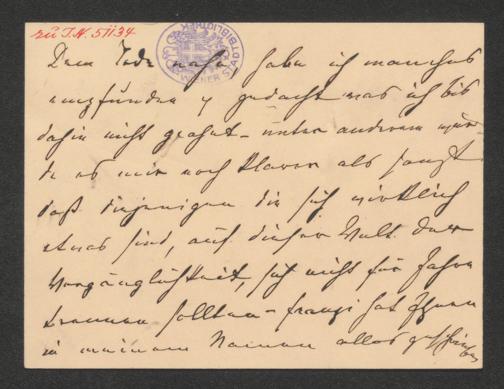 zu I.N. 51134
WIENER STADTBIBLIOTHEK
Dem Tode nahe habe ich manches
empfunden u gedacht was ich bis
dahin nicht geahnt – unter anderem wur-
de es mir noch klarer als sonst
daß diejenigen die sich wirklich
etwas sind, auf dieser Welt der
Vergänglichkeit, sich nicht für Jahre
trennen sollten – Franzi hat Ihnen
in meinem Namen alles geschrieben